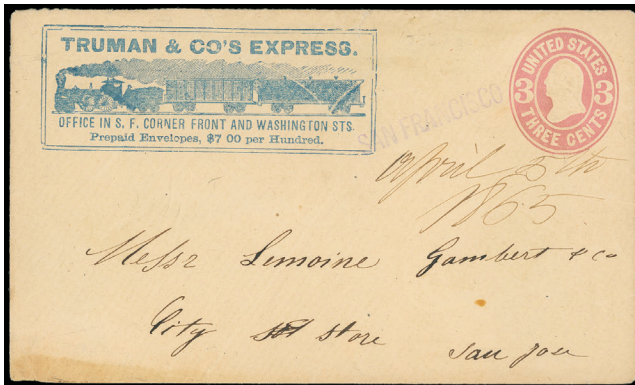 TRUMAN & CO'S EXPRESS.
OFFICE IN S. F. CORNER FRONT AND WASHINGTON STS.
Prepaid Envelopes, $7 00 per Hundred.
SAN FRANCISCO
UNITED STATES
3 3
THREE CENTS
April 5th
1865
Messr Lemoine Gambert & Co
City store San Jose